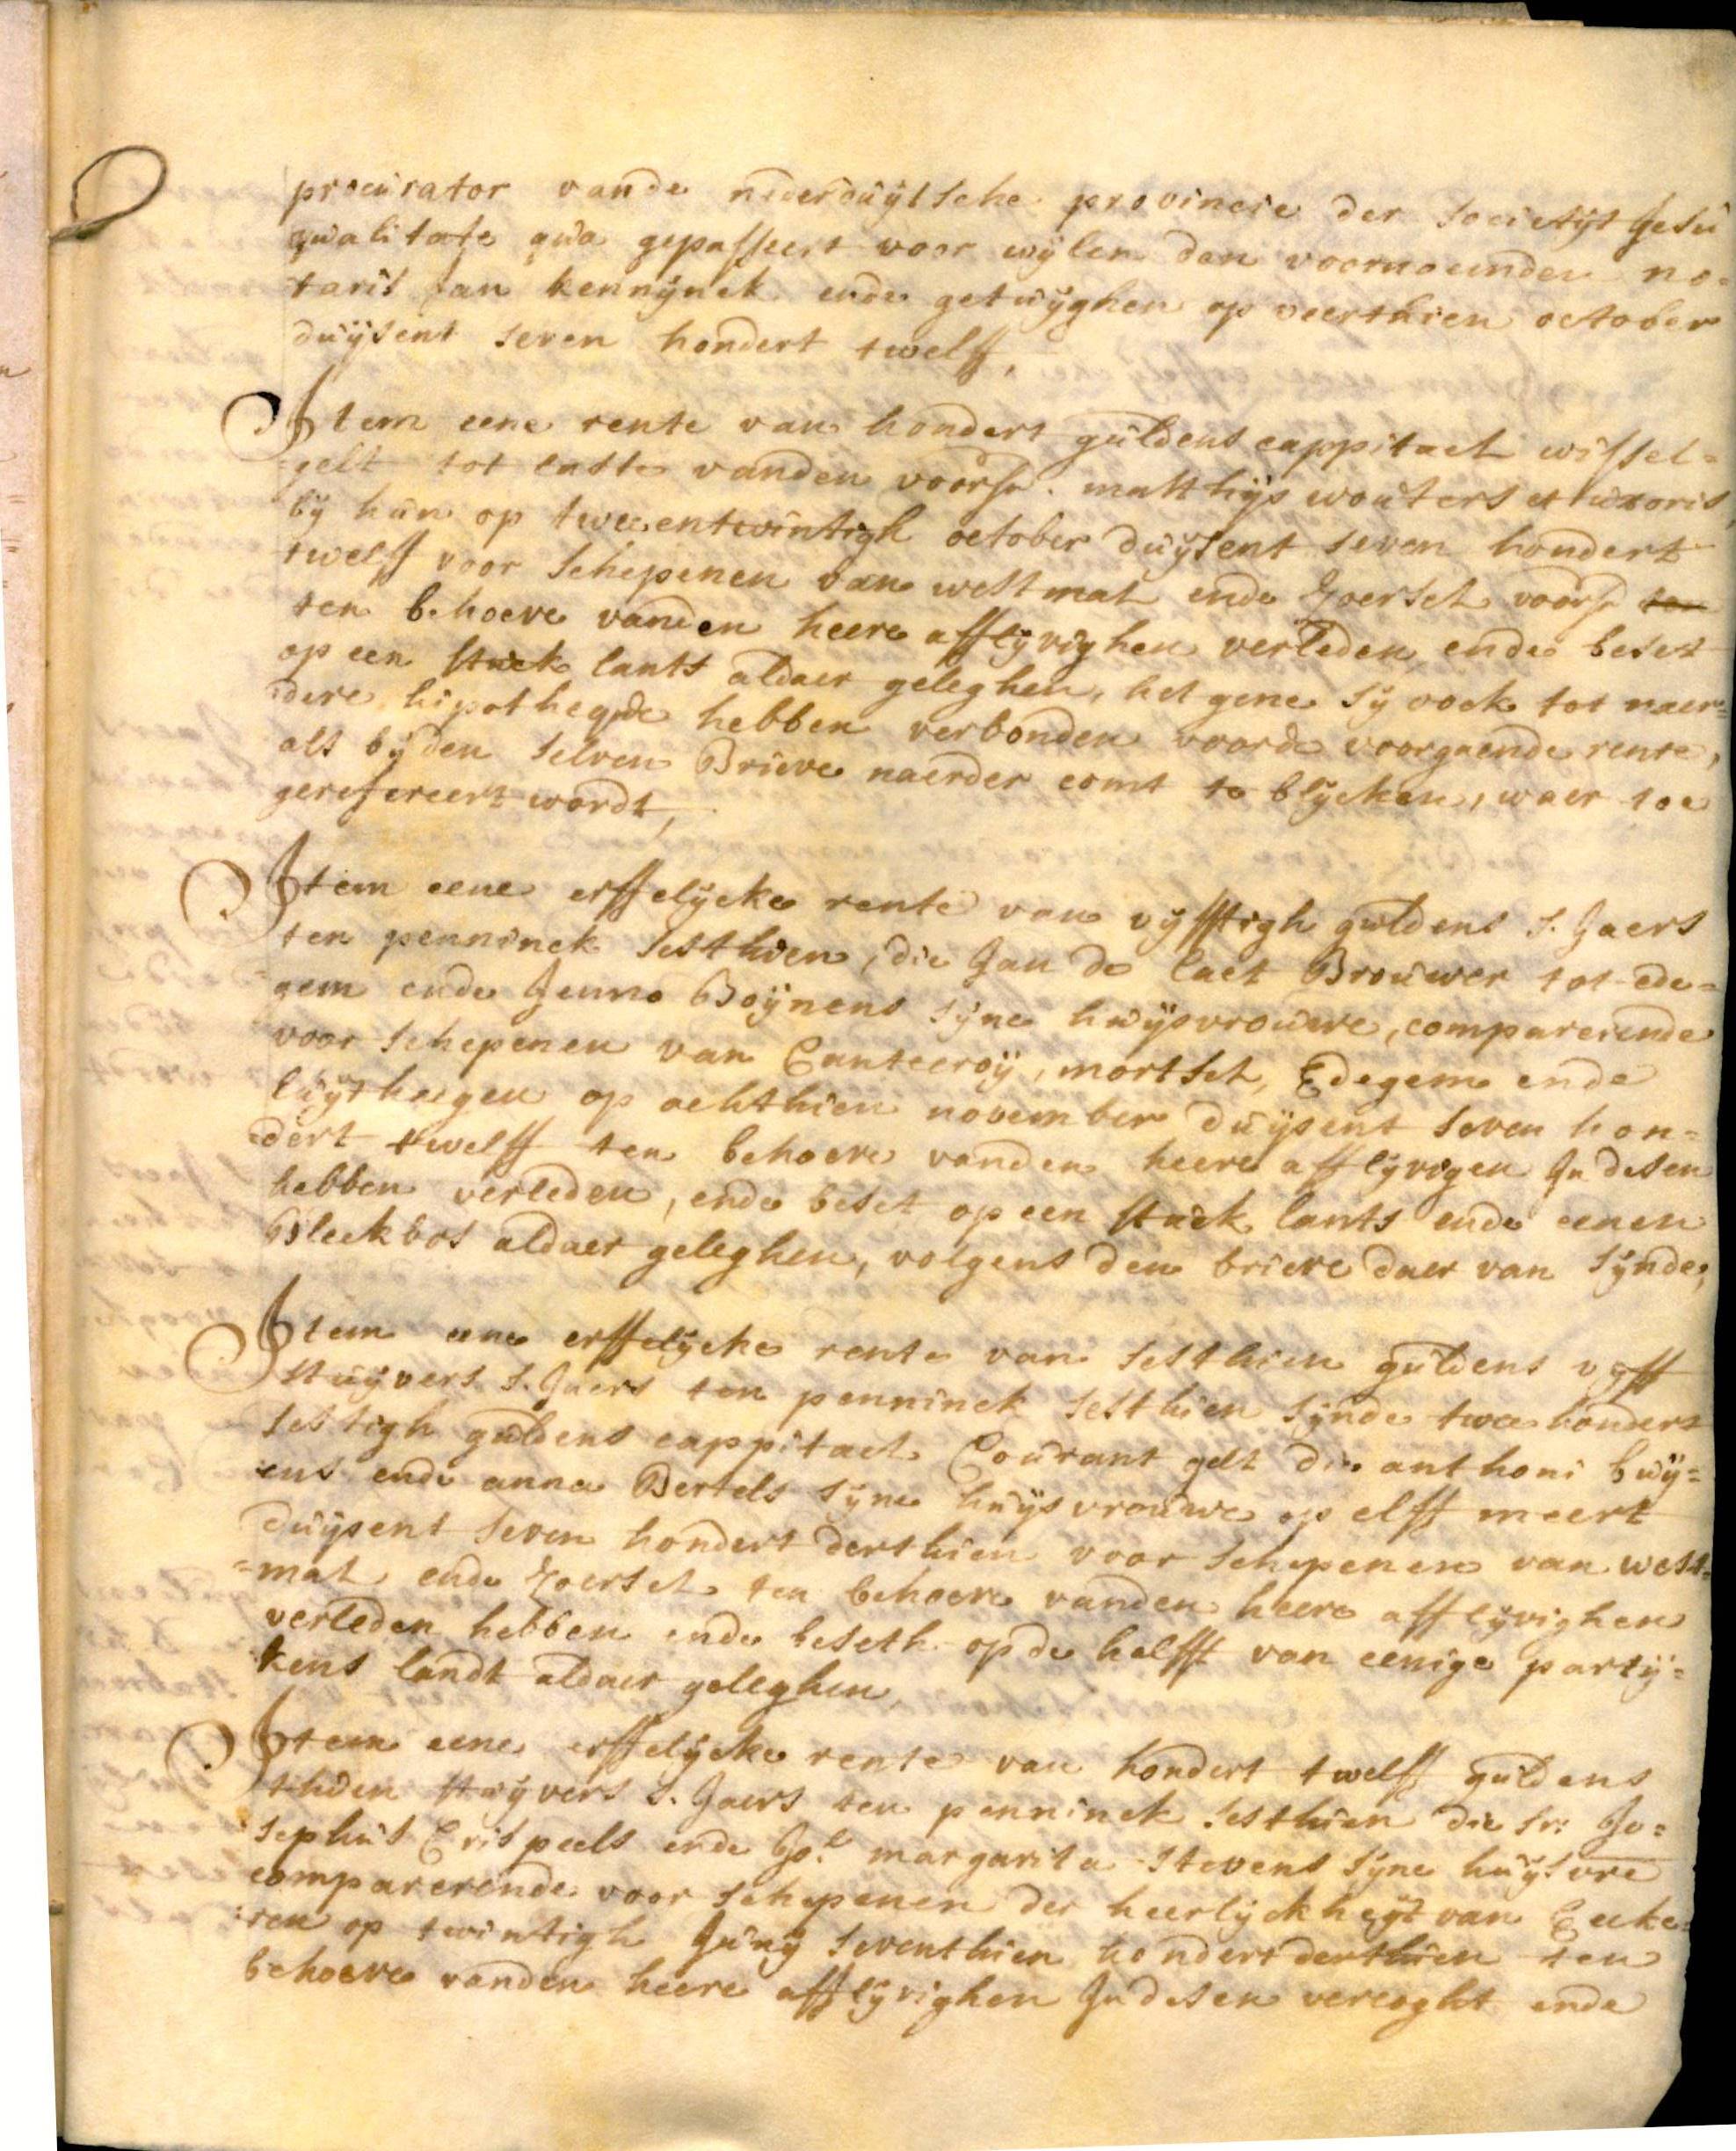 procurator vande nederduÿtsche provincie der societÿt Jesu
qualitate qua gepasseert voor wÿlen den voornoemden no=
taris Jan kennÿnck ende getuÿghen op veerthien october
duÿsent seven hondert twelff,
Item eene rente van hondert guldens cappitael wissel=
gelt tot laste vanden voorss. matthÿs wouters et uxoris
bÿ hun op tweentwintigh october duÿsent seven hondert
twelff voor schepenen van westmal ende Zoersel voorss
ten behoeve vanden heere afflÿvighen verleden ende beset
op een stuck lants aldaer geleghen, het gene sÿ oock tot naer=
dere hipotheque hebben verbonden voorde voorgaende rente,
als bÿ den selven Brieve naerder comt te blÿcken, waer toe
gerefereert wordt,
Item eene erffelÿcke rente van vÿfftigh guldens s. Jaers
ten penninck sesthien, die Jan de Laet Brouwer tot ede=
gem ende Jenno Boÿnens sÿne huÿsvrouwe, comparerende
voor schepenen van Canteeroÿ, mortsel, Edegem ende
luÿthagen op achthien november duÿsent seven hon=
dert twelff ten behoeve vanden heere afflÿvigen In desen
hebben verleden, ende beset op een stuck lants ende eenen
Bleekbos aldaer geleghen, volgens den brieve daer van sÿnde,
Item eene erffelÿcke rente van sesthien guldens vÿff
stuÿvers s. Jaers ten penninck sesthien sÿnde twee hondert
sestigh guldens cappitael Courant gelt die anthoni buÿ=
ens ende anna Bertels sÿne huÿsvrouwe op elff meert
duÿsent seven hondert derthien voor schepenen van west=
=mal ende Zoersel ten behoeve vanden heere afflÿvighen
verleden hebben ende beseth op de helfft van eenige partÿ=
kens landt aldaer geleghen,
Item eene erffelÿcke rente van hondert twelff guldens
thien stuÿvers s. Jaers ten penninck sesthien die sr: Jo=
sephus Crispeels ende Jo.e margarita Stevens sÿne huÿsvre
comparerende voor schepenen der heerlÿckheÿt van Eecke=
:ren op twintigh Junÿ seventhien hondert derthien ten
behoeve vanden heere afflÿvighen In desen vercoght ende